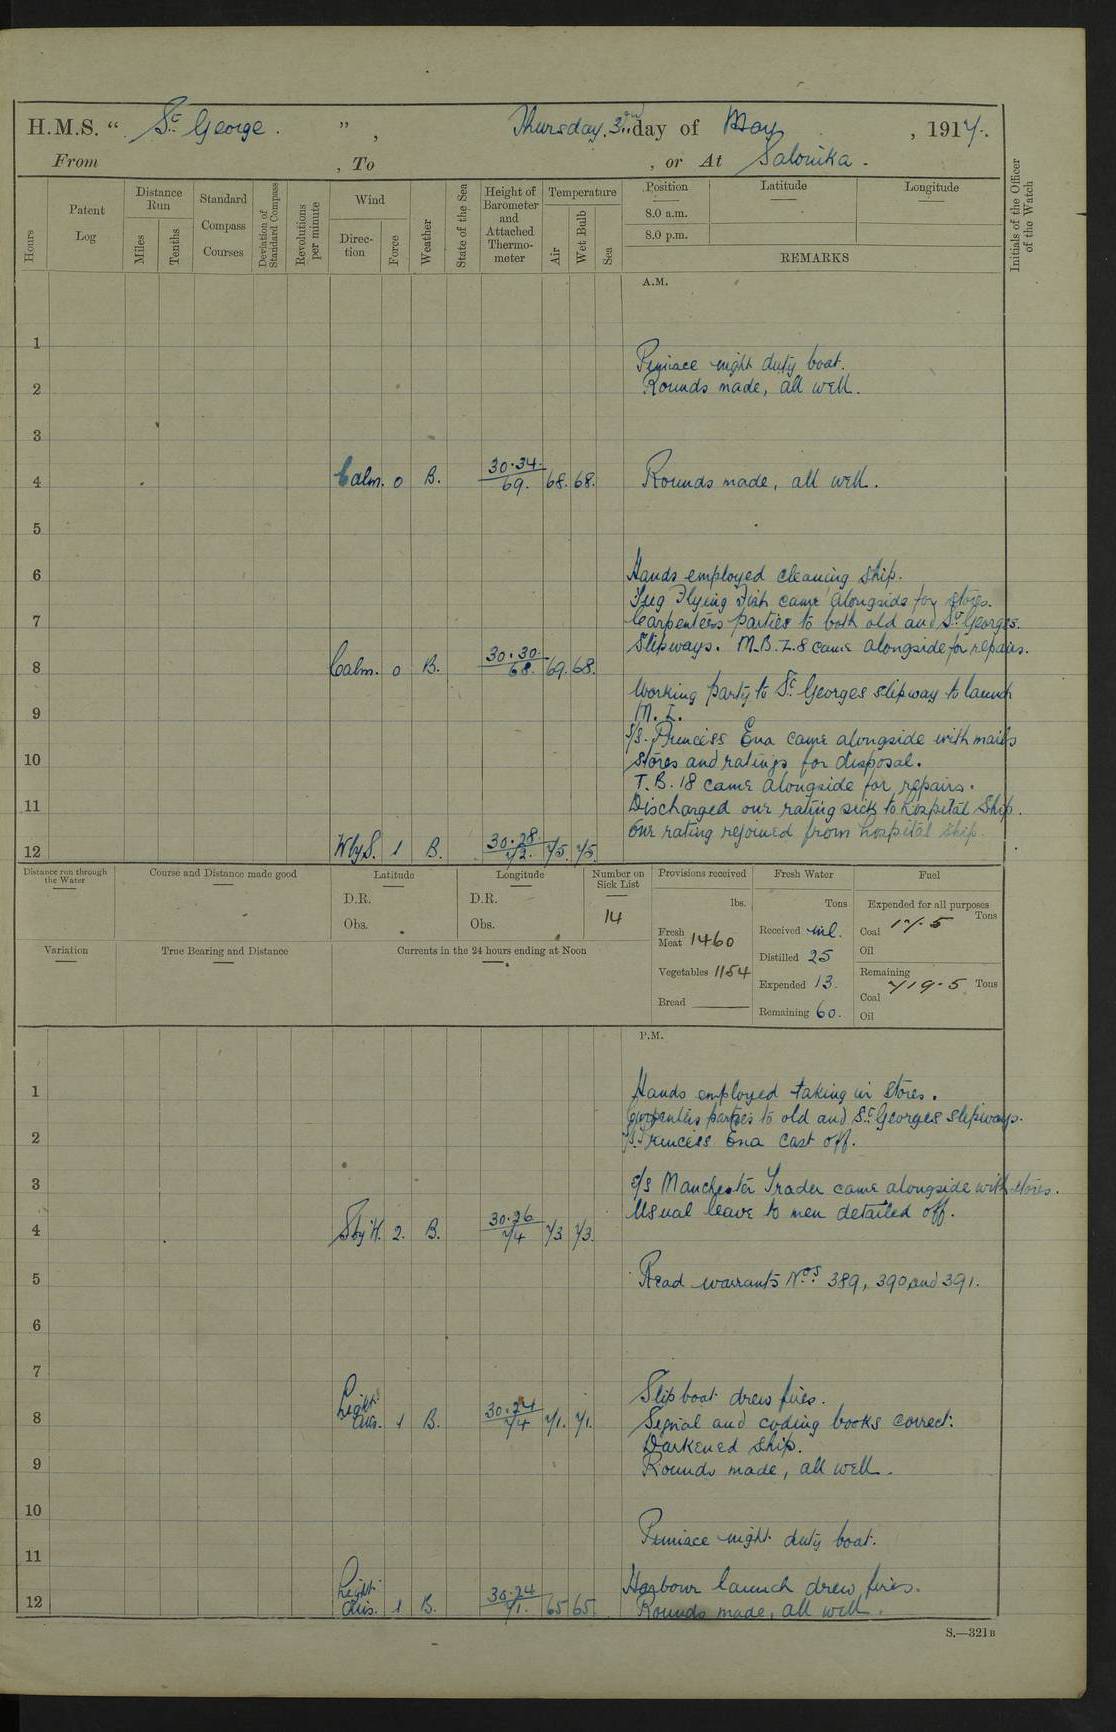 H.M.S. “ St George. ” , Thursday, 3rd day of May , 1917.
From , To , or At Salonika.
Hours
Patent Log
Distance Run
Miles
Tenths
Standard Compass Courses
Deviation of Standard Compass
Revolutions per minute
Wind
Direction
Force
Weather
State of the Sea
Height of Barometer and Attached Thermometer
Temperature
Air
Wet Bulb
Sea
Position
8.0 a.m.
8.0 p.m.
Latitude
Longitude
REMARKS
Initials of the Officer of the Watch
A.M.
1
Pinnace night duty boat.
2 Rounds made, all well.
3
4 Calm. 0 B. 30.34. 69. 68. 68. Rounds made, all well.
5
6 Hands employed cleaning ship.
Tug Flying Fish came alongside for stores.
7 Carpenters parties to both old and St Georges.
Slipways. M.B. 7.8 came alongside for repairs.
8 Calm. 0 B. 30.30. 68. 69. 68.
Working party to St Georges slipway to launch
9 M.L.
S/S. Princess Ena came alongside with mails
10 stores and ratings for disposal.
T.B. 18 came alongside for repairs.
11 Discharged one rating sick to hospital ship.
One rating rejoined from hospital ship.
12 WbyS. 1 B. 30.28. 72. 75. 75.
Distance run through the Water
Course and Distance made good
Latitude
D.R.
Obs.
Longitude
D.R.
Obs.
Number on Sick List
14
Provisions received
lbs.
Fresh Meat 1460
Vegetables 1154
Bread
Fresh Water
Tons
Received nil.
Distilled 25
Expended 13.
Remaining 60.
Fuel
Expended for all purposes
Tons
Coal 17.5
Oil
Remaining
Coal 719.5 Tons
Oil
Variation
True Bearing and Distance
Currents in the 24 hours ending at Noon
P.M.
1 Hands employed taking in stores.
Carpenters parties to old and St Georges slipways.
2 S/S. Princess Ena cast off.
3 S/S Manchester Trader came alongside with stores.
Usual leave to men detailed off.
4 SbyW. 2. B. 30.26 74 73 73.
5 Read warrants Nos. 389, 390, and 391.
6
7
Slipboat drew fires.
8 Light airs. 1 B. 30.24 74 71. 71. Signal and coding books correct.
Darkened ship.
9 Rounds made, all well.
10
Pinnace night duty boat.
11
Harbour launch drew fires.
12 Light airs. 1 B. 30.24 71. 65 65 Rounds made, all well.
S.—321B